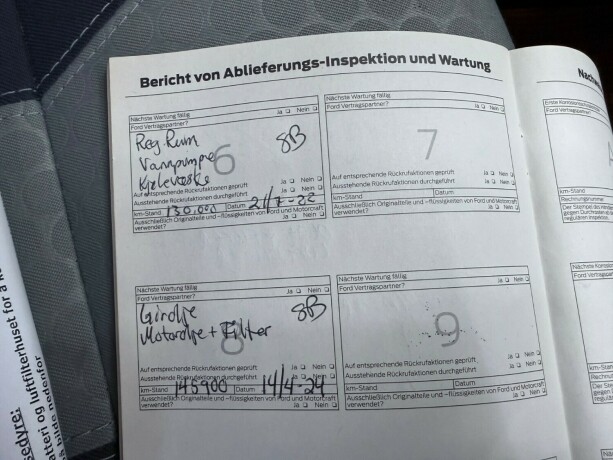 Bericht von Ablieferungs-Inspektion und Wartung
Nächste Wartung fällig
Ja Nein
Ford Vertragspartner?
Reg. Reim
Vannpumpe
Kjølevæske
SB
6
Auf entsprechende Rückrufaktionen geprüft Ja Nein
Ausstehende Rückrufaktionen durchgeführt Ja Nein
km-Stand 130.000 Datum 21/7-22
Ausschließlich Originalteile und –flüssigkeiten von Ford und Motorcraft
verwendet? Ja Nein
Nächste Wartung fällig
Ja Nein
Ford Vertragspartner?
7
Auf entsprechende Rückrufaktionen geprüft Ja Nein
Ausstehende Rückrufaktionen durchgeführt Ja Nein
km-Stand Datum
Ausschließlich Originalteile und –flüssigkeiten von Ford und Motorcraft
verwendet? Ja Nein
Nächste Wartung fällig
Ja Nein
Ford Vertragspartner?
Girolje
Motorolje + Filter
SB
8
Auf entsprechende Rückrufaktionen geprüft Ja Nein
Ausstehende Rückrufaktionen durchgeführt Ja Nein
km-Stand 145900 Datum 14/4-24
Ausschließlich Originalteile und –flüssigkeiten von Ford und Motorcraft
verwendet? Ja Nein
Nächste Wartung fällig
Ja Nein
Ford Vertragspartner?
9
Auf entsprechende Rückrufaktionen geprüft Ja Nein
Ausstehende Rückrufaktionen durchgeführt Ja Nein
km-Stand Datum
Ausschließlich Originalteile und –flüssigkeiten von Ford und Motorcraft
verwendet? Ja Nein
km-Stand
Rechnungsnummer
km-Stand
og luftfilterhuset for å